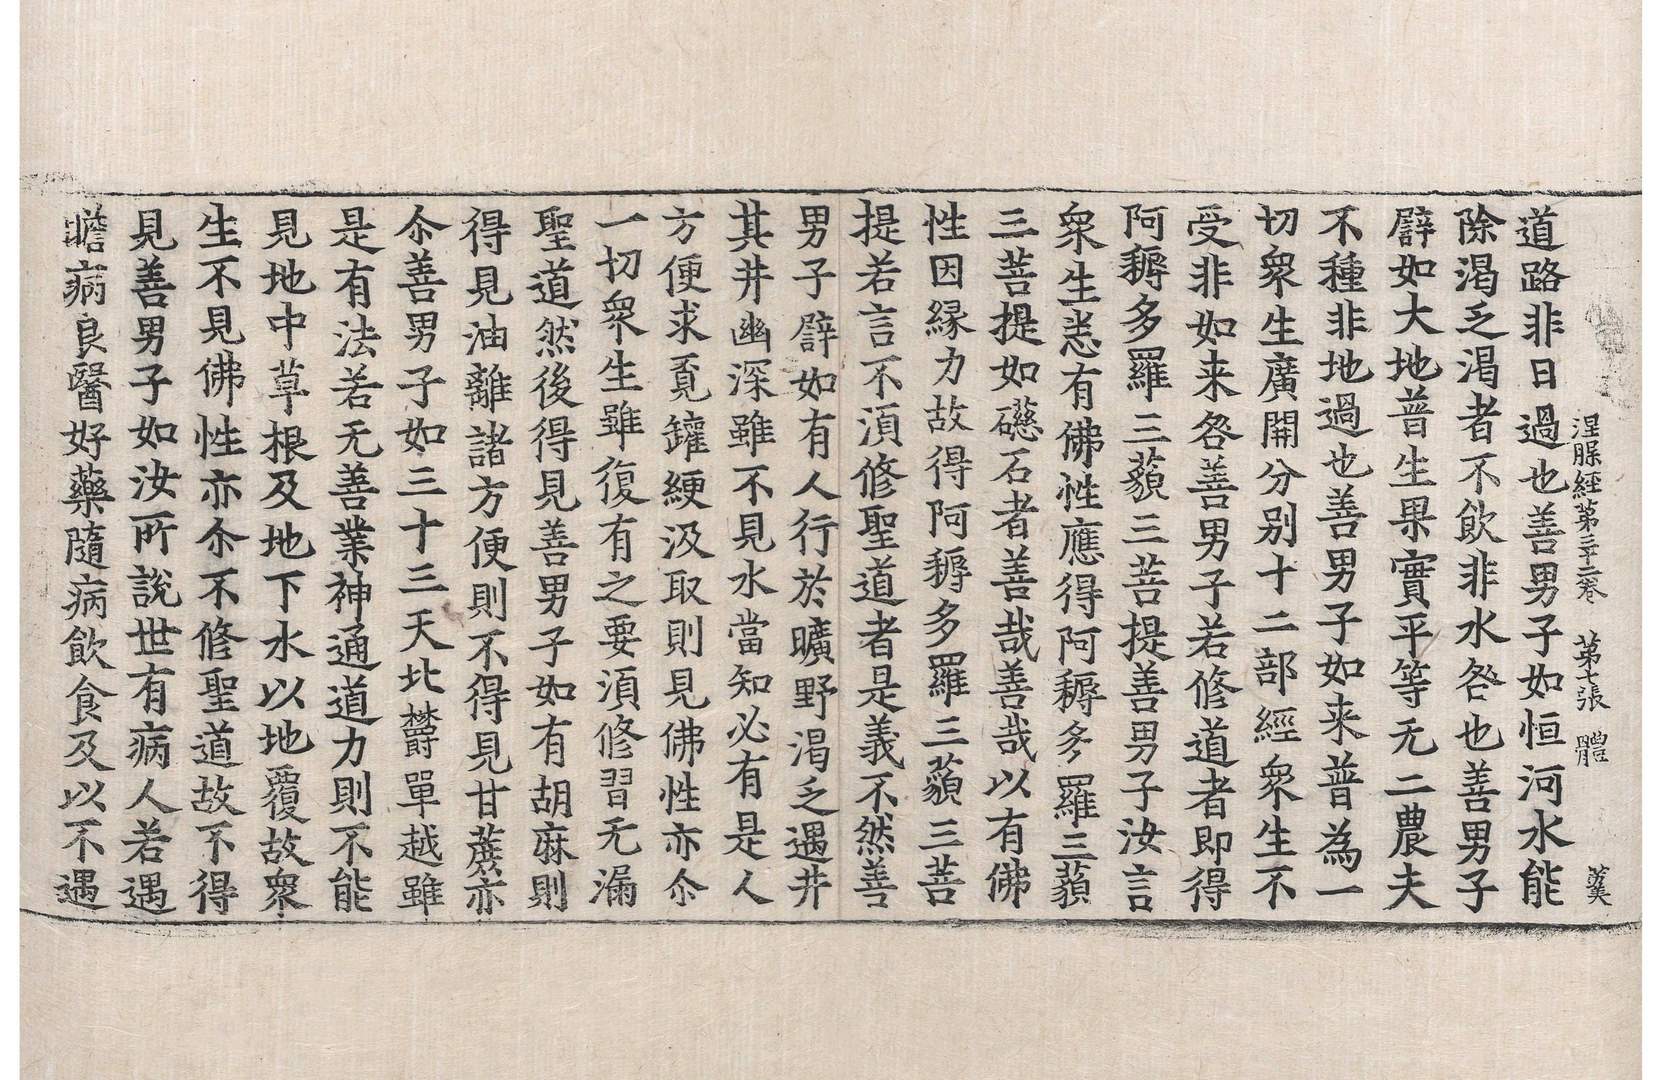 涅槃經第三十二卷 第七張 體
道路非日過也善男子如恒河水能
除渴乏渴者不飲非水咎也善男子
譬如大地普生果實平等无二農夫
不種非地過也善男子如来普為一
切衆生廣開分別十二部經衆生不
受非如来咎善男子若修道者即得
阿耨多羅三藐三菩提善男子汝言
衆生悉有佛性應得阿耨多羅三藐
三菩提如礠石者善哉善哉以有佛
性因縁力故得阿耨多羅三藐三菩
提若言不湏修聖道者是義不然善
男子譬如有人行於曠野渴乏遇井
其井幽深雖不見水當知必有是人
方便求覔鑵綆汲取則見佛性亦尒
一切衆生雖復有之要湏修習无漏
聖道然後得見善男子如有胡麻則
得見油離諸方便則不得見甘蔗亦
尒善男子如三十三天北欝單越雖
是有法若无善業神通道力則不能
見地中草根及地下水以地覆故衆
生不見佛性亦尒不修聖道故不得
見善男子如汝所說世有病人若遇
瞻病良醫好藥隨病飲食及以不遇